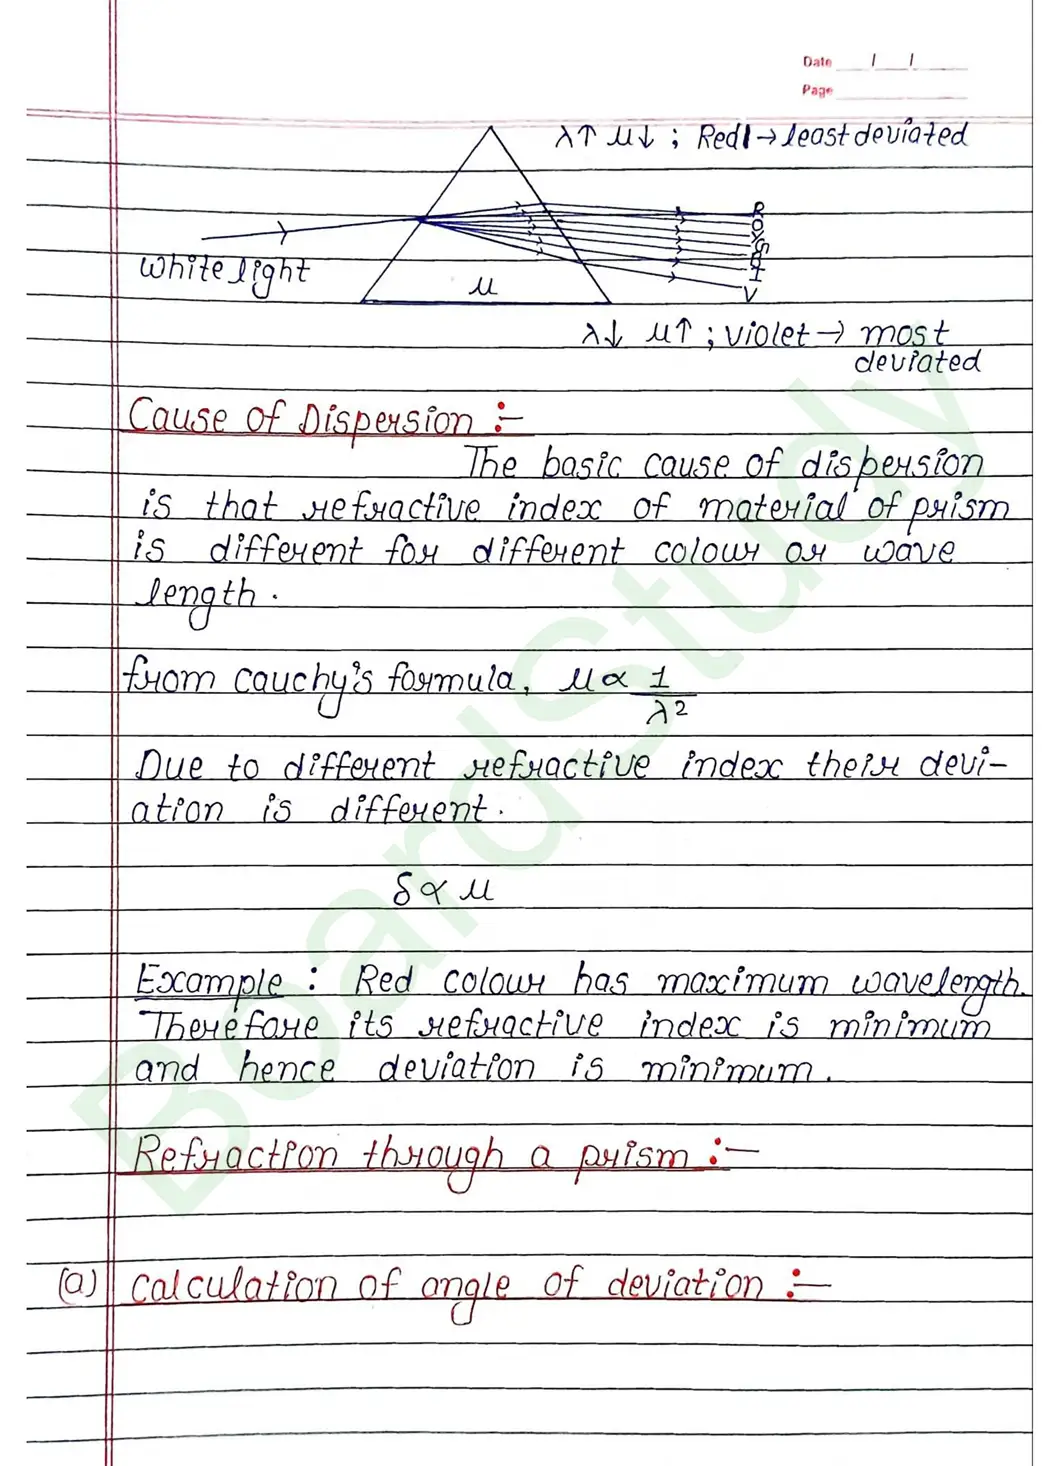 Date / /
Page
λ↑ μ↓ ; Red → least deviated
R
O
Y
G
B
I
V
White light
μ
λ↓ μ↑ ; violet → most
deviated
Cause of Dispersion :-
The basic cause of dispersion
is that refractive index of material of prism
is different for different colour or wave
length.
from cauchy's formula, μ ∝ 1/λ²
Due to different refractive index their devi-
ation is different.
δ ∝ μ
Example : Red colour has maximum wavelength.
Therefore its refractive index is minimum
and hence deviation is minimum.
Refraction through a prism :-
(a) Calculation of angle of deviation :-
BoardStudy